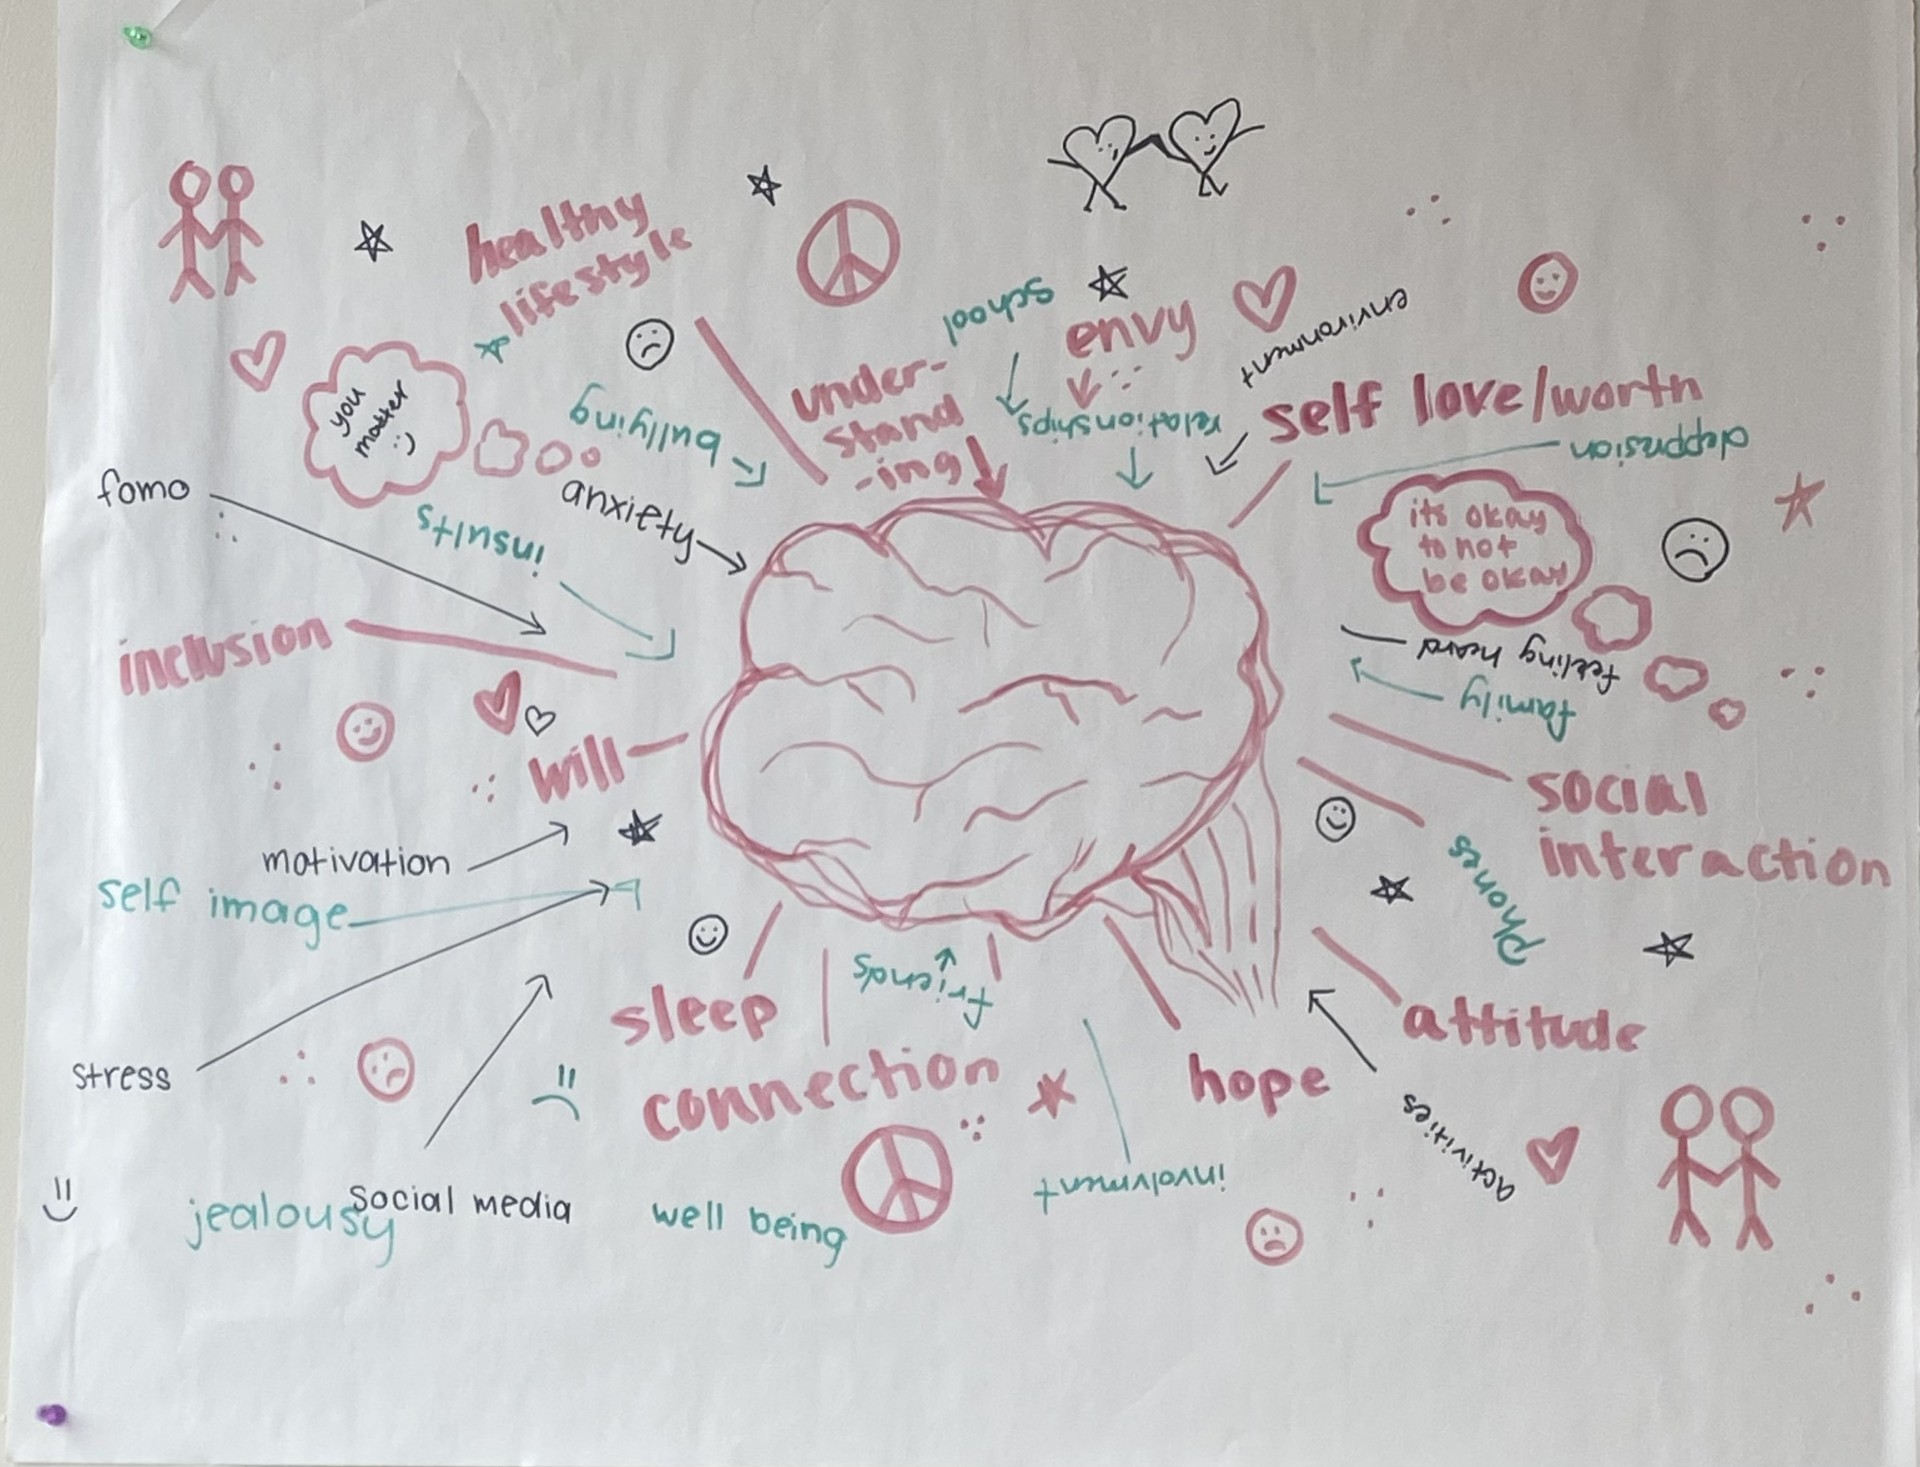 healthy
lifestyle
school
envy
environment
you
matter
:)
bullying
under-
stand
-ing
relationships
self love/worth
depprsion
fomo
insults
anxiety
its okay
to not
be okay
inclusion
feeling heard
family
will
social
interaction
motivation
self image
phones
sleep
friends
attitude
stress
connection
hope
activities
jealousy
social media
well being
involvment